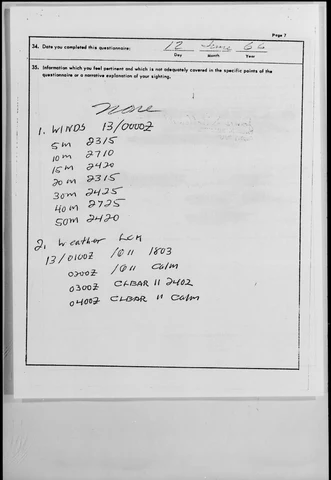 Page 7
34. Date you completed this questionnaire: 12 June 66
Day Month Year
35. Information which you feel pertinent and which is not adequately covered in the specific points of the
questionnaire or a narrative explanation of your sighting.
none
1. WINDS 13/0000Z
5m 2315
10m 2710
15m 2420
20m 2315
30m 2425
40m 2725
50m 2420
2. Weather LCK
13/0100Z /O 11 1803
0200Z /O 11 Calm
0300Z CLEAR 11 2402
0400Z CLEAR 11 Calm